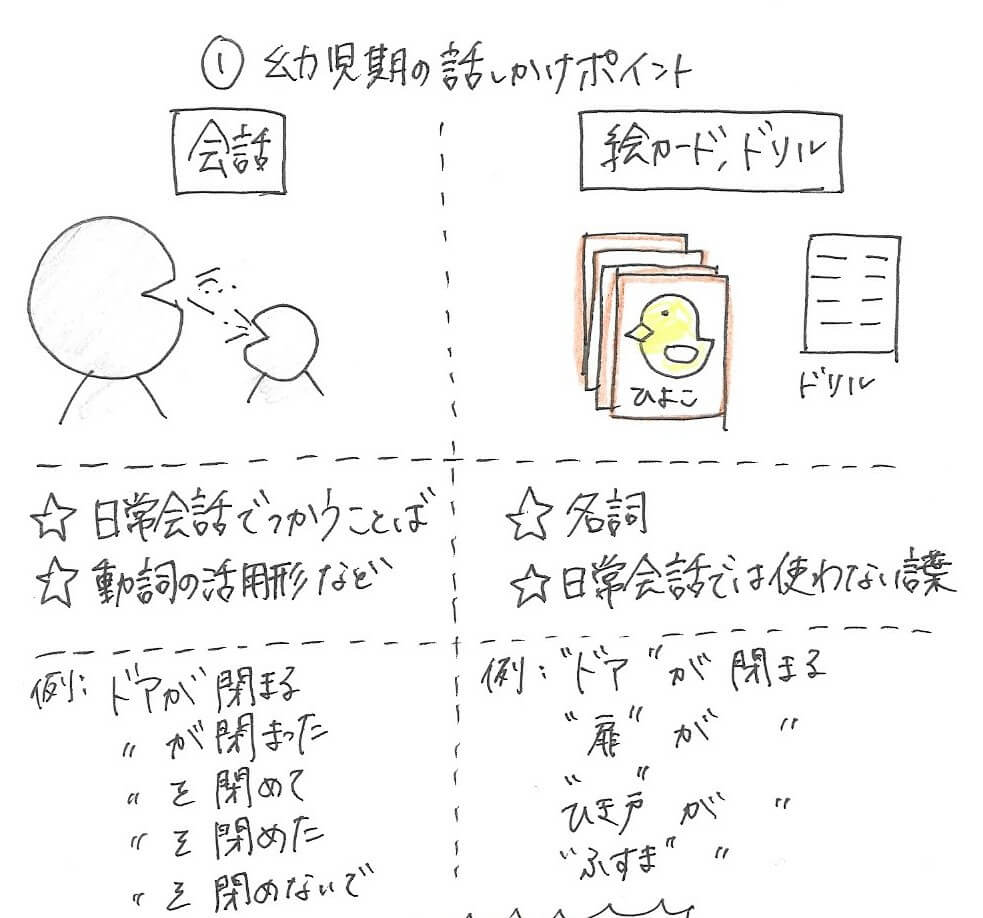 ① 幼児期の話しかけポイント
会話
☆ 日常会話でつかうことば
☆ 動詞の活用形など
例: ドアが閉まる
〃 が閉まった
〃 を閉めて
〃 を閉めた
〃 を閉めないで
絵カード, ドリル
ひよこ
ドリル
☆ 名詞
☆ 日常会話では使わない言葉
例: "ドア"が 閉まる
"扉"が 〃
"ひき戸"が 〃
"ふすま" 〃